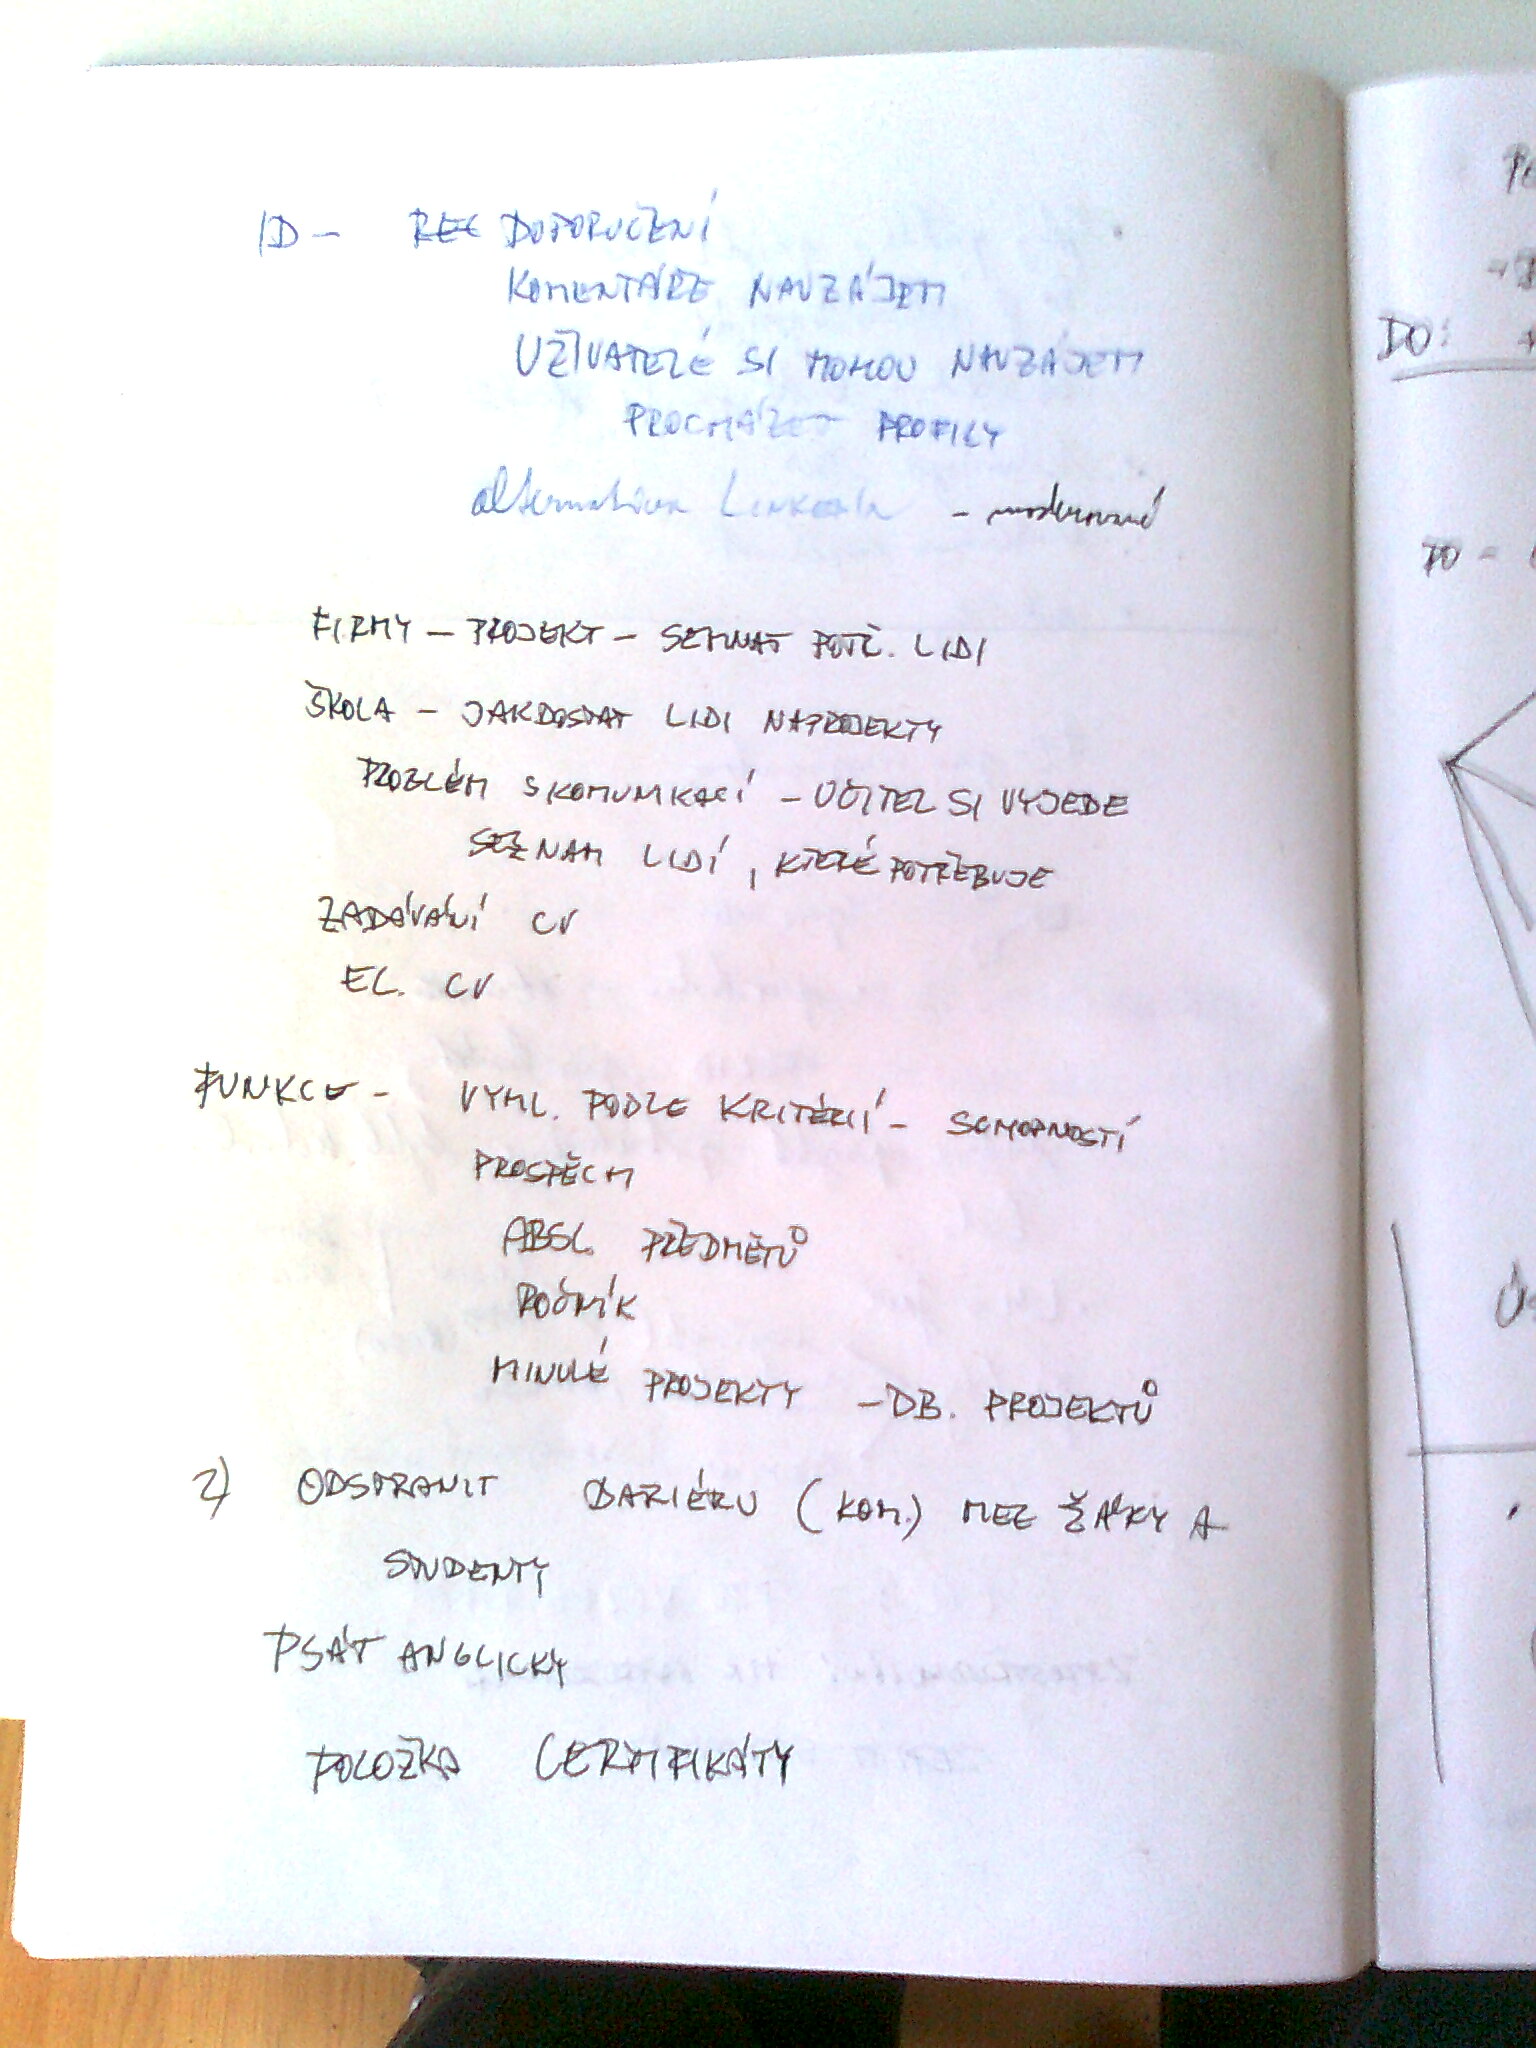 ID - REC DOPORUČENÍ
KOMENTÁŘE NAVZÁJEM
UŽIVATELÉ SI MOHOU NAVZÁJEM
PROCHÁZET PROFILY
alternativa LinkedIn -
FIRMY - PROJEKT - SEHNAT POTŘ. LIDI
ŠKOLA - JAK DOSTAT LIDI NA PROJEKTY
PROBLÉM S KOMUNIKACÍ - UČITEL SI VYJEDE
SEZNAM LIDÍ, KTERÉ POTŘEBUJE
ZADÁVÁNÍ CV
EL. CV
FUNKCE - VYHL. PODLE KRITÉRIÍ - SCHOPNOSTÍ
PROSPĚCH
ABSL. PŘEDMĚTŮ
ROČNÍK
MINULÉ PROJEKTY - DB. PROJEKTŮ
2) ODSTRANIT BARIÉRU (KOM.) MEZ ŽÁKY A
STUDENTY
PSÁT ANGLICKY
POLOŽKA CERTIFIKÁTY
DO:
DO -